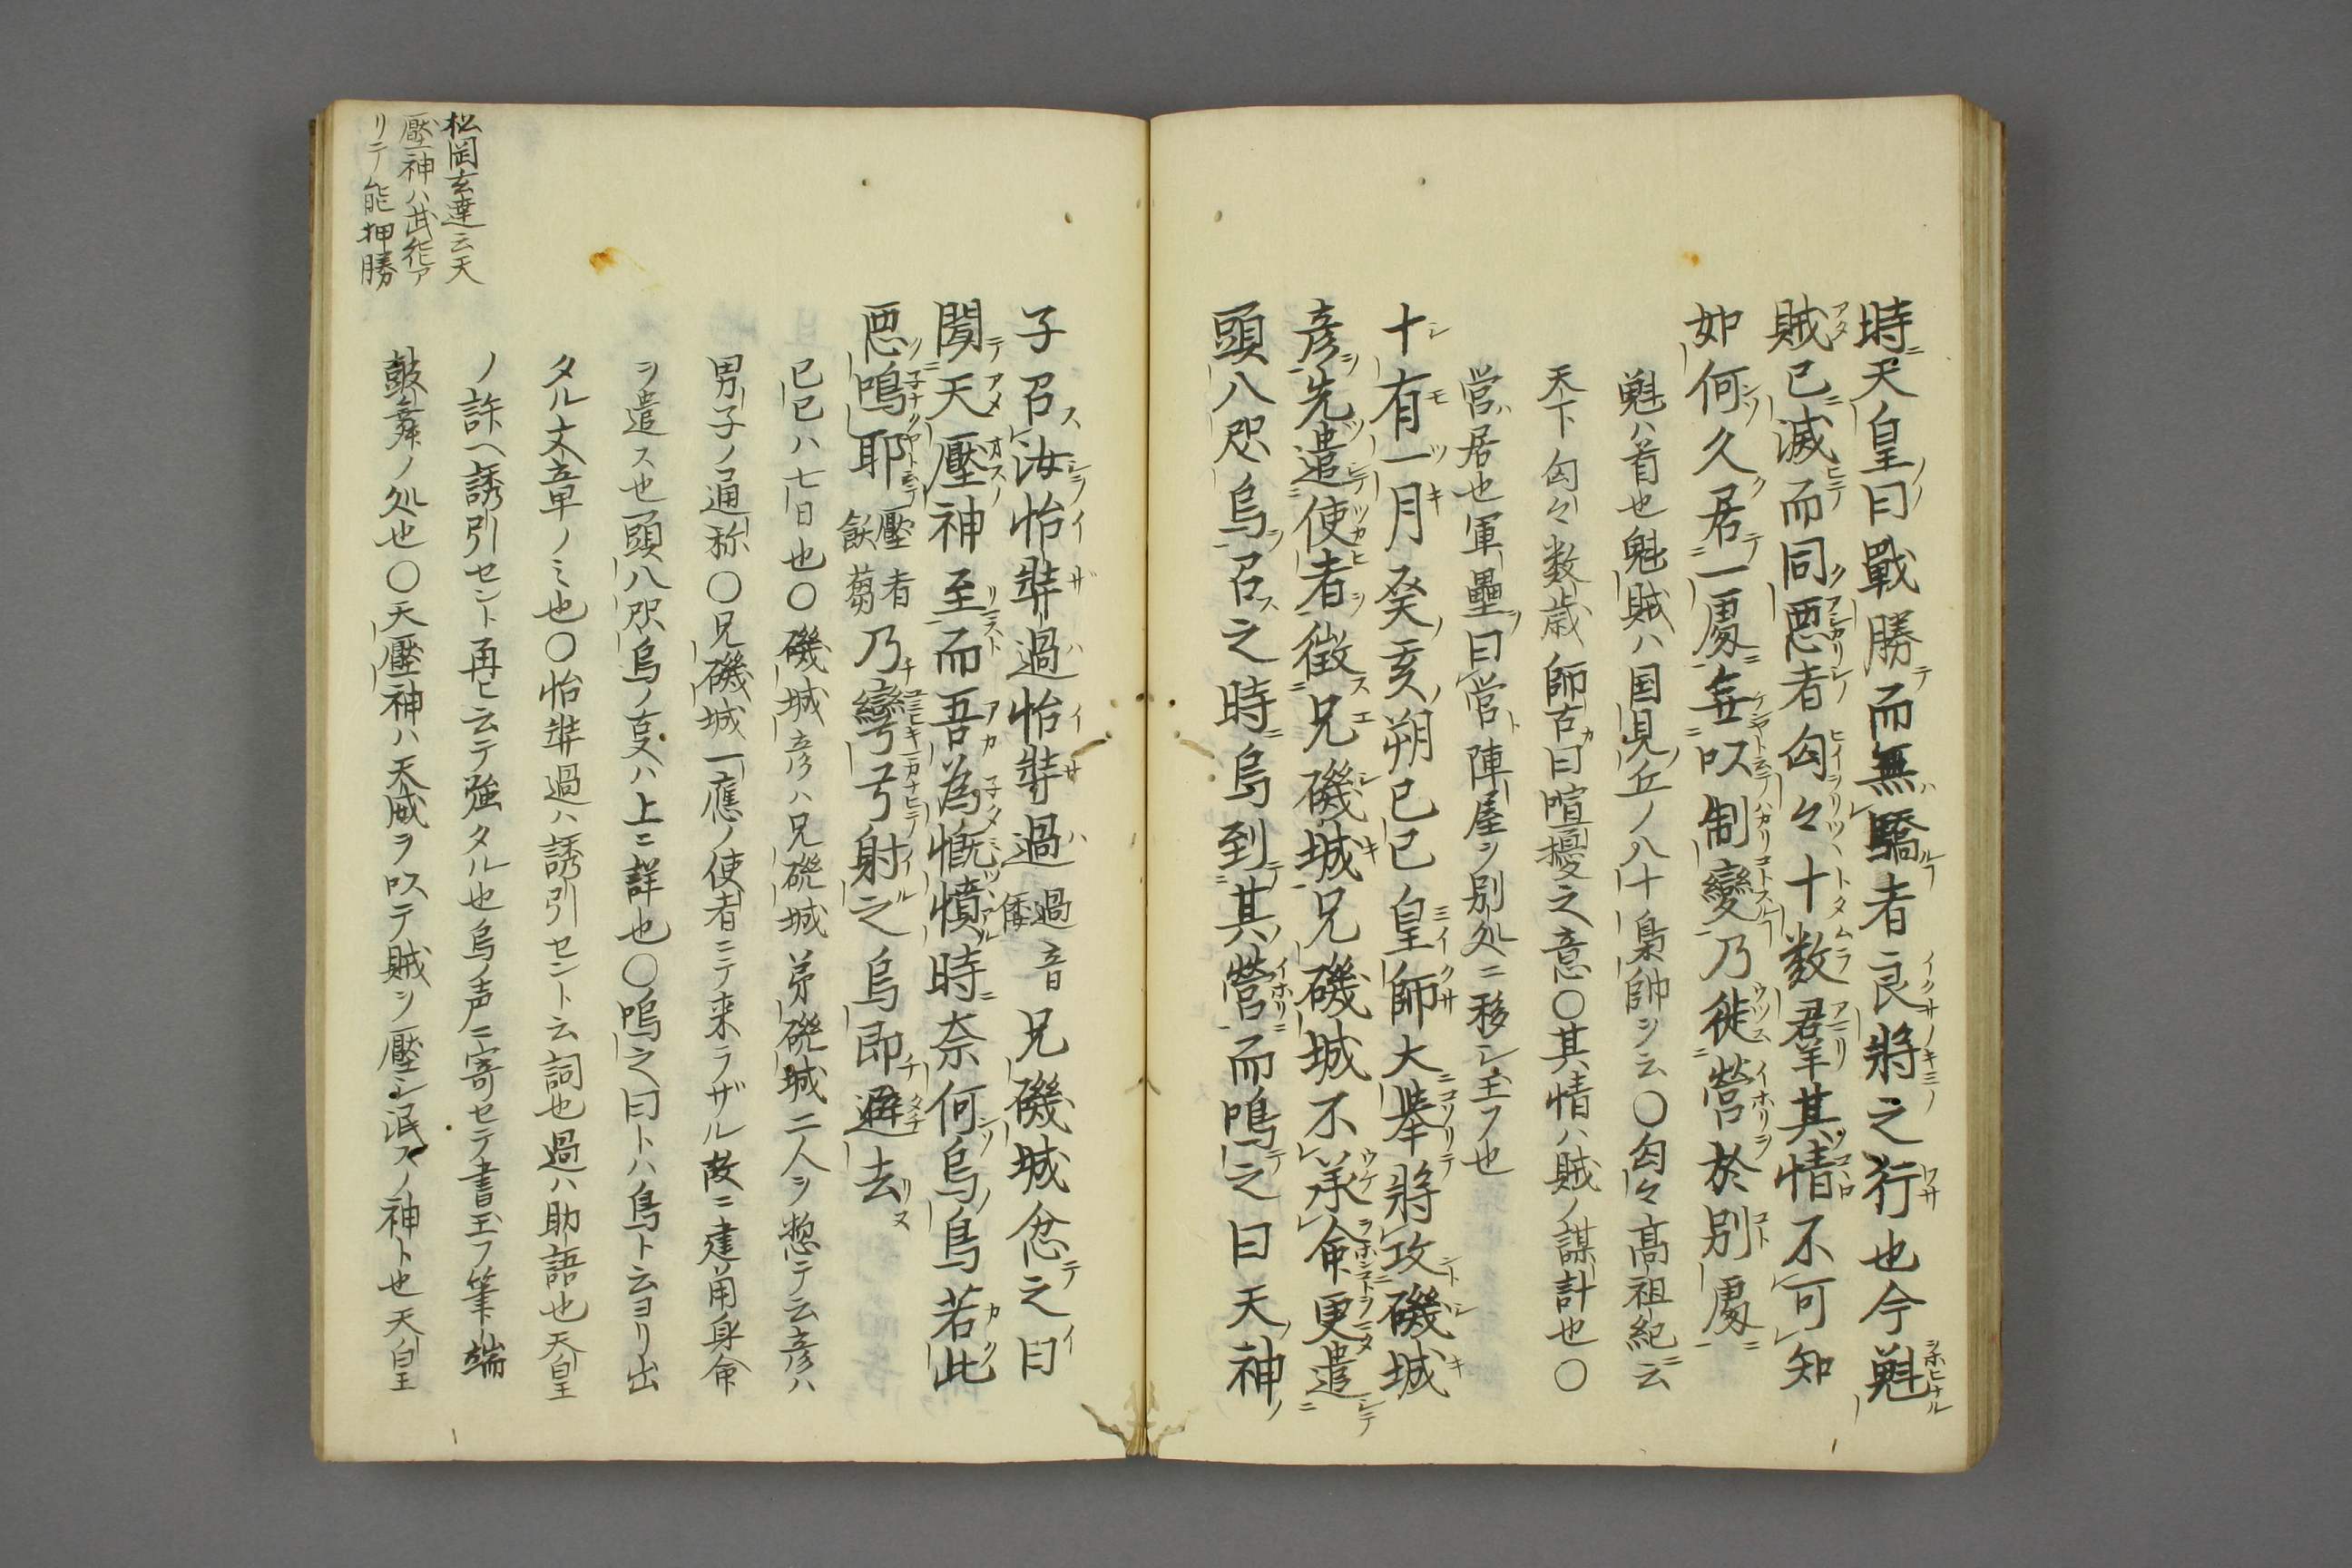 時天皇曰戰勝而無驕者良將之行也今魁
賊已滅而同悪者匈々十数群其情不可知
如何久居一處無以制變乃徙營於別處
魁ハ首也魁賊ハ国見丘ノ八十梟帥ヲ云〇匈々高祖紀云
天下匈々数歳師古曰喧擾之意〇其情ハ賊ノ謀計也〇
営ハ居也軍壘ヲ曰営ト陣屋ヲ別処ニ移シ玉フ也
十有一月癸亥朔己巳皇師大擧將攻磯城
彦先遣使者徴兄磯城兄磯城不承命更遣
頭八咫烏召之時烏到其營而鳴之曰天神
子召汝怡奘過怡奘過過音倭兄磯城忿之曰
聞天壓神至而吾為慨憤時奈何烏鳥若此
悪鳴耶壓者飫蒭乃彎弓射之烏即避去
己巳ハ七日也〇磯城彦ハ兄磯城弟磯城二人ヲ惣テ云彦ハ
男子ノ通称〇兄磯城一應ノ使者ニテ来ラザル故ニ建角身命
ヲ遣ス也頭八咫烏ノ亰ハ上ニ詳也〇鳴之曰トハ鳥ト云ヨリ出
タル文章ノミ也〇怡奘過ハ誘引セント云詞也過ハ助語也天皇
ノ許ヘ誘引セント再ヒ云テ強タル也烏ノ声ニ寄セテ書玉フ筆端
鼓舞ノ処也〇天壓神ハ天威ヲ以テ賊ヲ壓シ泯スノ神ト也天皇
松岡玄達云天
壓神ハ武徳ア
リテ能押勝